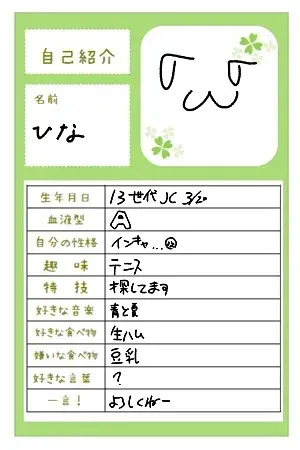 自己紹介
名前
ひな
生年月日 13世代 JC 3/20
血液型 A
自分の性格 インキャ...
趣味 テニス
特技 探してます
好きな音楽 青と夏
好きな食べ物 生ハム
嫌いな食べ物 豆乳
好きな言葉 ?
一言! よろしくねー